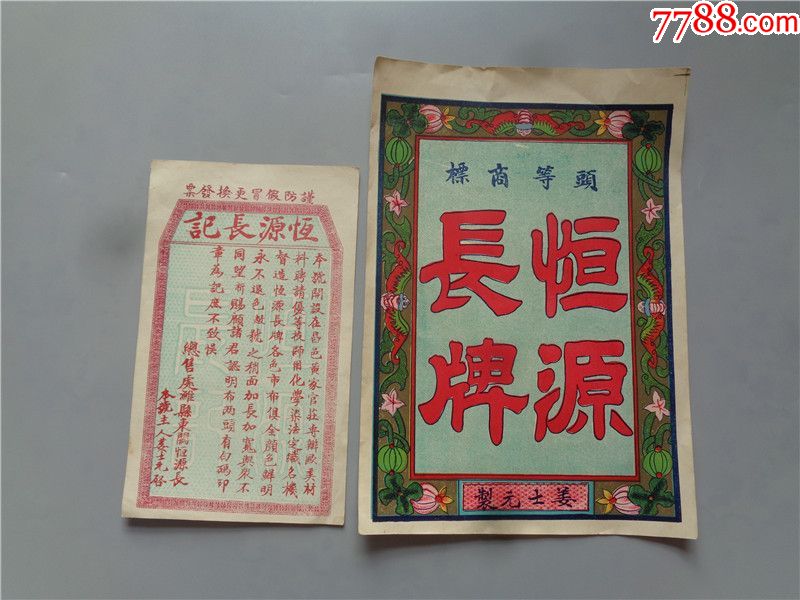 7788.com
謹防假冒更換發票
恆源長記
本號開設在昌邑黃家官莊専辦歐美材
料聘請優等技師用化學染法定織名機
督造恆源長牌各色市布俱全顏色鮮明
永不退色敝號之稍面加長加寬與眾不
同望祈賜顧諸君認明布两頭有句碼印
章為記庶不致悞
總售處濰縣東關恒源長
本號主人姜士元啓
頭等商標
恒源
長牌
姜士元製